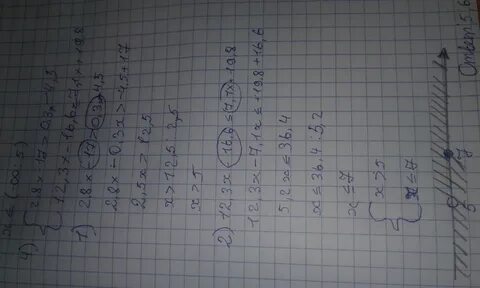 x ≤ (-∞; 5)
4) { 2,8x - 17 > 0,3x - 4,5
12,3x - 16,6 ≤ 7,1x + 19,8
1) 2,8x - 17 > 0,3x - 4,5
2,8x - 0,3x > -4,5 + 17
2,5x > 12,5
x > 12,5 : 2,5
x > 5
2) 12,3x - 16,6 ≤ 7,1x + 19,8
12,3x - 7,1x ≤ +19,8 + 16,6
5,2x ≤ 36,4
x ≤ 36,4 : 5,2
x ≤ 7
{ x > 5
x ≤ 7
5 7
Ответ: 5; 6